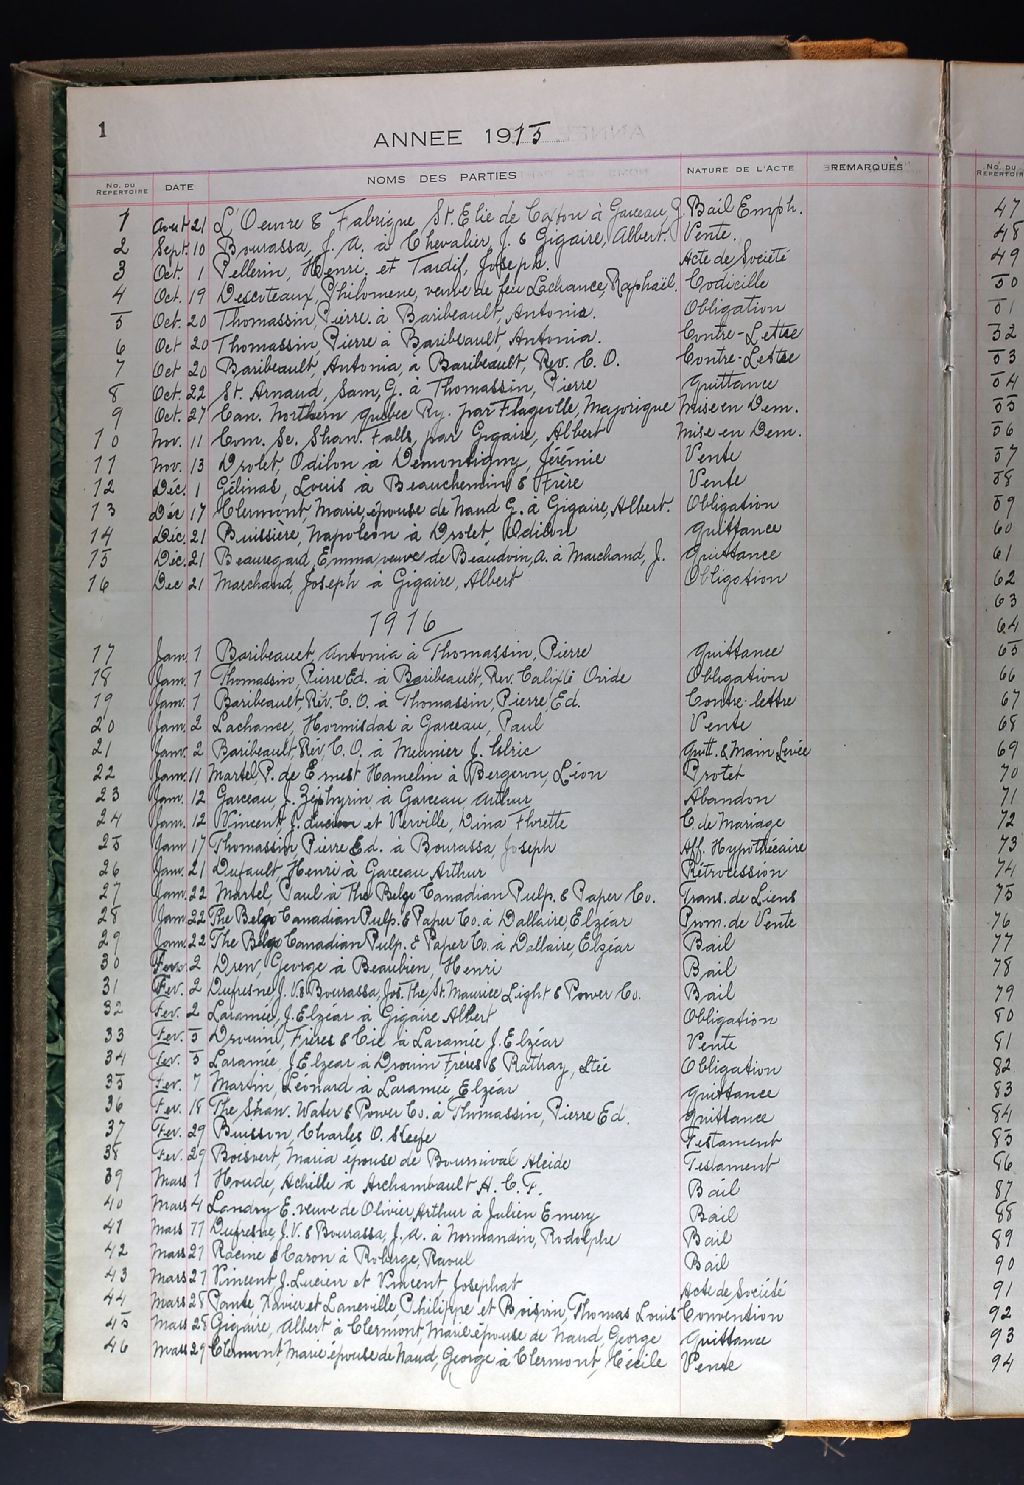 1
ANNEE 1915
No. DU REPERTOIRE DATE NOMS DES PARTIES NATURE DE L'ACTE REMARQUES
1 Aout 21 L'Oeuvre & Fabrique St. Elie de Caxton à Garceau, J. Bail Emph.
2 Sept. 10 Bourassa, J. A. à Chevalier, J. & Gigaire, Albert. Vente.
3 Oct. 1 Pellerin, Henri. et Tardif, Joseph. Acte de Société
4 Oct. 19 Descoteaux, Philomene, veuve de feu Lachance, Raphaël. Codicille
5 Oct. 20 Thomassin, Pierre. à Baribeault, Antonia. Obligation
6 Oct 20 Thomassin Pierre à Baribeault, Antonia. Contre-Lettre
7 Oct 20 Baribeault, Antonia, à Baribeault, Rev. C. O. Contre-Lettre
8 Oct. 22 St. Arnaud, Sam, G. à Thomassin, Pierre Quittance
9 Oct. 27 Can. Northern Quebec Ry. par Flageolle, Majorique Mise en Dem.
10 Nov. 11 Com. Sc. Shaw. Falls, par Gigaire, Albert Mise en Dem.
11 Nov. 13 Drolet, Odilon à Demontigny, Jérémie Vente
12 Déc. 1 Gélinas, Louis à Beauchemin & Frère Vente
13 Déc 17 Clermont, Marie, épouse de Naud G. à Gigaire, Albert. Obligation
14 Déc. 21 Buissière, Napoléon à Drolet, Odilon Quittance
15 Déc. 21 Beauregard, Emma, veuve de Beaudoin, A. à Marchand, J. Quittance
16 Dec 21 Marchand, Joseph à Gigaire, Albert Obligation
1916
17 Jan. 1 Baribeault, Antonia à Thomassin, Pierre Quittance
18 Jan. 1 Thomassin, Pierre Ed. à Baribeault, Rev. Calixte Ovide Obligation
19 Jan. 1 Baribeault, Rév. C. O. à Thomassin, Pierre Ed. Contre-lettre
20 Jan. 2 Lachance, Hormisdas à Garceau, Paul Vente
21 Janv. 2 Baribeault, Rév. C. O. à Meunier J. Quitt. & Main Levée
22 Janv. 11 Martel P. de Ernest Hamelin à Bergeron, Léon Protet
23 Janv. 12 Garceau, J. Zéphyrin à Garceau Arthur Abandon
24 Jan. 12 Vincent, J. Lucien et Verville, Dina Florette C. de Mariage
25 Janv 17 Thomassin Pierre Ed. à Bourassa, Joseph Aff. Hypothécaire
26 Janv. 21 Dufault Henri à Garceau Arthur Rétrocession
27 Jan. 22 Martel, Paul à The Belgo Canadian Pulp. & Paper Co. Trans. de Liens
28 Jan 22 The Belgo Canadian Pulp. & Paper Co. à Dallaire, Elzéar Prom. de Vente
29 Jan. 22 The Belgo Canadian Pulp. & Paper Co. à Dallaire, Elzéar Bail
30 Fev. 2 Drew, George à Beaubien, Henri Bail
31 Fev. 2 Dufresne J. V. & Bourassa, Jos. The St. Maurice Light & Power Co. Bail
32 Fev. 2 Laramée, J. Elzéar à Gigaire Albert Obligation
33 Fev. 5 Drouin, Frères & Cie à Laramée J. Elzéar Vente
34 Fev. 5 Laramée J. Elzear à Drouin Frères & Rattray, Ltée Obligation
35 Fev. 7 Martin, Léonard à Laramée Elzéar Quittance
36 Fev. 18 The Shaw. Water & Power Co. à Thomassin, Pierre Ed. Quittance
37 Fev. 29 Buisson, Charles O. Testament
38 Fev. 29 Boisvert, Maria épouse de Bournival Alcide Testament
39 Mars 1 Houde, Achille à Archambault H. C. F. Bail
40 Mars 4 Landry E. veuve de Olivier Arthur à Julien Emery Bail
41 Mars 17 Dufresne, J. V. & Bourassa, J. A. à Normandin, Rodolphe Bail
42 Mars 27 Racine & Caron à Roberge, Raoul Bail
43 Mars 27 Vincent J. Lucien et Vincent Josephat Acte de Société
44 Mars 28 Xavier et Laneville Philippe et Boisvin, Thomas Louis Convention
45 Mars 28 Gigaire, Albert à Clermont Marie épouse de Naud George Quittance
46 Mars 29 Clermont, Marie épouse de Naud, George à Clermont, Cécile Vente
No. DU REPERTOIRE
47
48
49
50
51
52
53
54
55
56
57
58
59
60
61
62
63
64
65
66
67
68
69
70
71
72
73
74
75
76
77
78
79
80
81
82
83
84
85
86
87
88
89
90
91
92
93
94